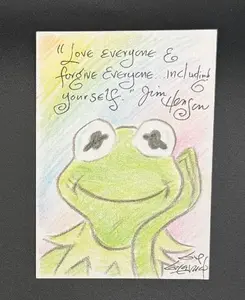 "Love everyone &
forgive everyone. including
yourself." Jim
Henson